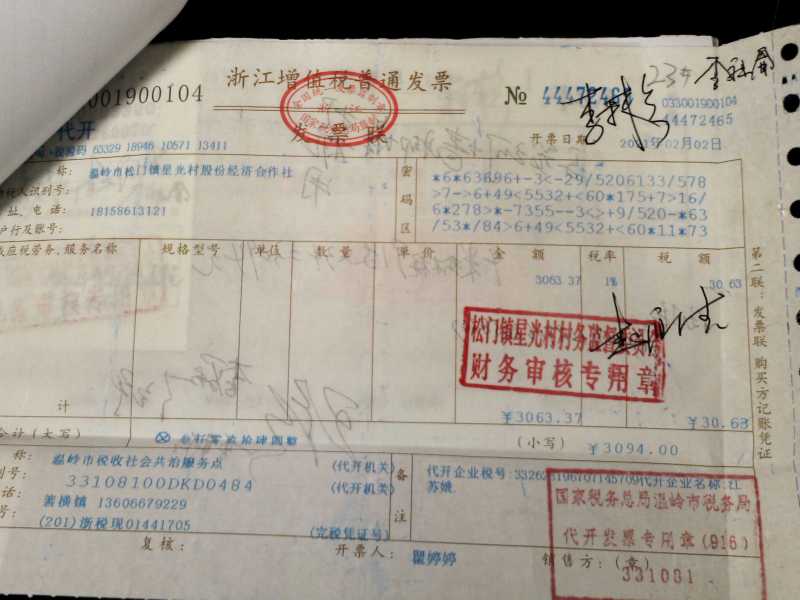 浙江增值税普通发票
001900104
№
033001900104
44472465
代开
开票日期
02月02日
63329 18946 10571 13411
称: 温岭市松门镇星光村股份经济合作社
税人识别号:
址、电话: 18158613121
户行及账号:
密码区
*6*63696+-3<-29/5206133/578
>7->6+49<5532+<60*175+7>16/
6*278>*-7355--3<>+9/520-*63
/53*/84>6+49<5532+<60*11*73
应税劳务、服务名称 规格型号 单位 数量 单价 金额 税率 税额
3063.37 1% 30.63
松门镇星光村村务监督委员
财务审核专用章
计 ¥3063.37 ¥30.63
合计(大写) 叁仟零玖拾肆圆整 (小写) ¥3094.00
称: 温岭市税收社会共治服务点 (代开机关)
别号: 33108100DKD0484 (代开机关)
话: 箬横镇 13606679229
号: (201)浙税现01441705 (完税凭证号)
备注
代开企业名称:江
苏娥
国家税务总局温岭市税务局
代开发票专用章(916)
331081
复核: 开票人: 瞿婷婷 销售方:(章)
第二联:发票联 购买方记账凭证